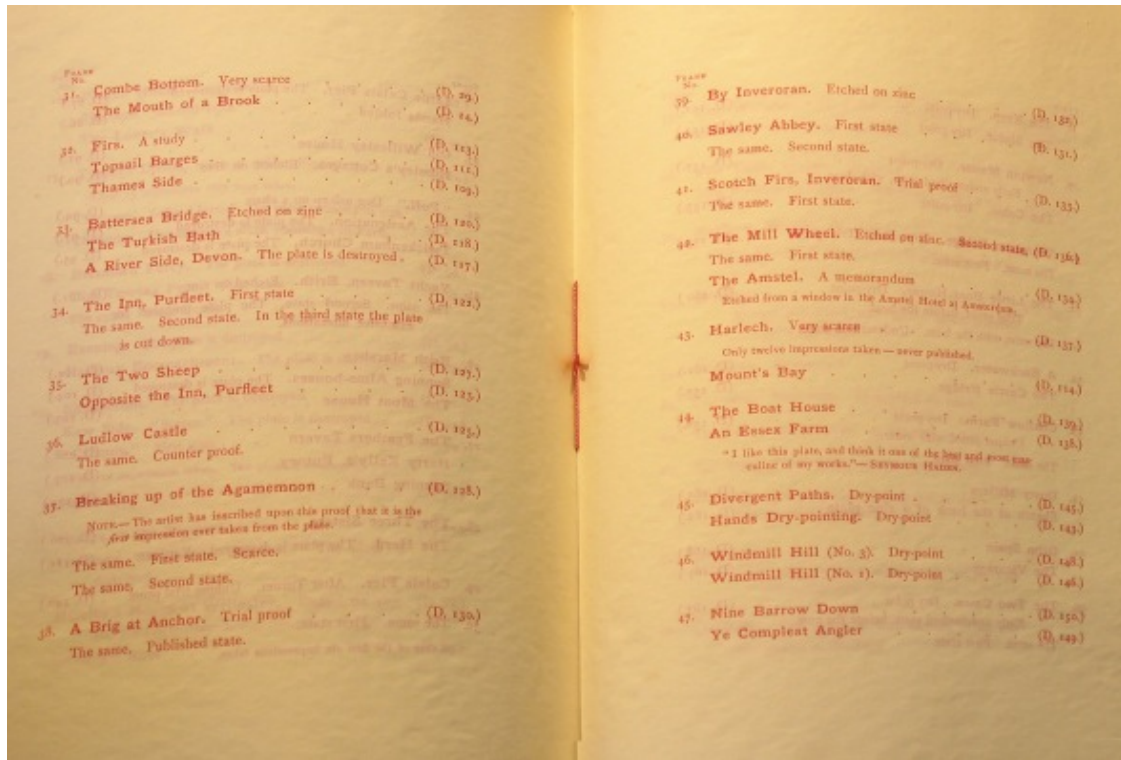 FRAME
No.
31. Combe Bottom. Very scarce . . . . (D. 29.)
The Mouth of a Brook . . . . . (D. 14.)
32. Firs. A study . . . . . . (D. 113.)
Topsail Barges . . . . . . (D. 111.)
Thames Side . . . . . . . (D. 109.)
33. Battersea Bridge. Etched on zinc . . . (D. 120.)
The Turkish Bath . . . . . . (D. 118.)
A River Side, Devon. The plate is destroyed . (D. 117.)
34. The Inn, Purfleet. First state . . . . (D. 122.)
The same. Second state. In the third state the plate
is cut down.
35. The Two Sheep . . . . . . (D. 127.)
Opposite the Inn, Purfleet . . . . (D. 123.)
36. Ludlow Castle . . . . . . (D. 125.)
The same. Counter proof.
37. Breaking up of the Agamemnon . . . (D. 128.)
NOTE.—The artist has inscribed upon this proof that it is the
first impression ever taken from the plate.
The same. First state. Scarce.
The same. Second state.
38. A Brig at Anchor. Trial proof . . . . (D. 130.)
The same. Published state.
FRAME
No.
39. By Inveroran. Etched on zinc . . . . (D. 132.)
40. Sawley Abbey. First state . . . . (D. 131.)
The same. Second state.
41. Scotch Firs, Inveroran. Trial proof . . . (D. 133.)
The same. First state.
42. The Mill Wheel. Etched on zinc. Second state. (D. 136.)
The same. First state.
The Amstel. A memorandum . . . . (D. 134.)
Etched from a window in the Amstel Hotel at Amsterdam.
43. Harlech. Very scarce . . . . . (D. 137.)
Only twelve impressions taken — never published.
Mount's Bay . . . . . . (D. 114.)
44. The Boat House . . . . . . (D. 139.)
An Essex Farm . . . . . . (D. 138.)
"I like this plate, and think it one of the best and most
of my works."—SEYMOUR HADEN.
45. Divergent Paths. Dry-point . . . . (D. 145.)
Hands Dry-pointing. Dry-point . . . (D. 143.)
46. Windmill Hill (No. 3). Dry-point . . . (D. 148.)
Windmill Hill (No. 1). Dry-point . . . (D. 146.)
47. Nine Barrow Down . . . . . (D. 150.)
Ye Compleat Angler . . . . . (D. 149.)